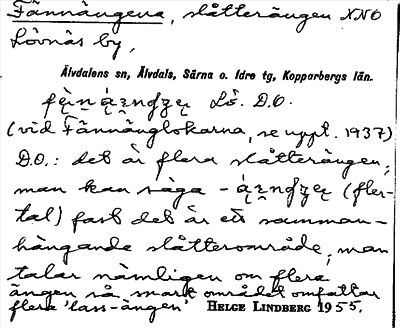 Fännängena, slåtterängen NNO
Lövnäs by,
Älvdalens sn, Älvdals, Särna o. Idre tg, Kopparbergs län.
Lö. D.O.
(vid Fännänglokarna, se uppt. 1937)
D.O.: det är flera slåtterängen,
man kan säga – (fler-
tal) fast det är ett samman-
hängande slåtterområde, man
talar nämligen om flera
ängen så snart området omfattar
flera 'lass-ängen' HELGE LINDBERG 1955.